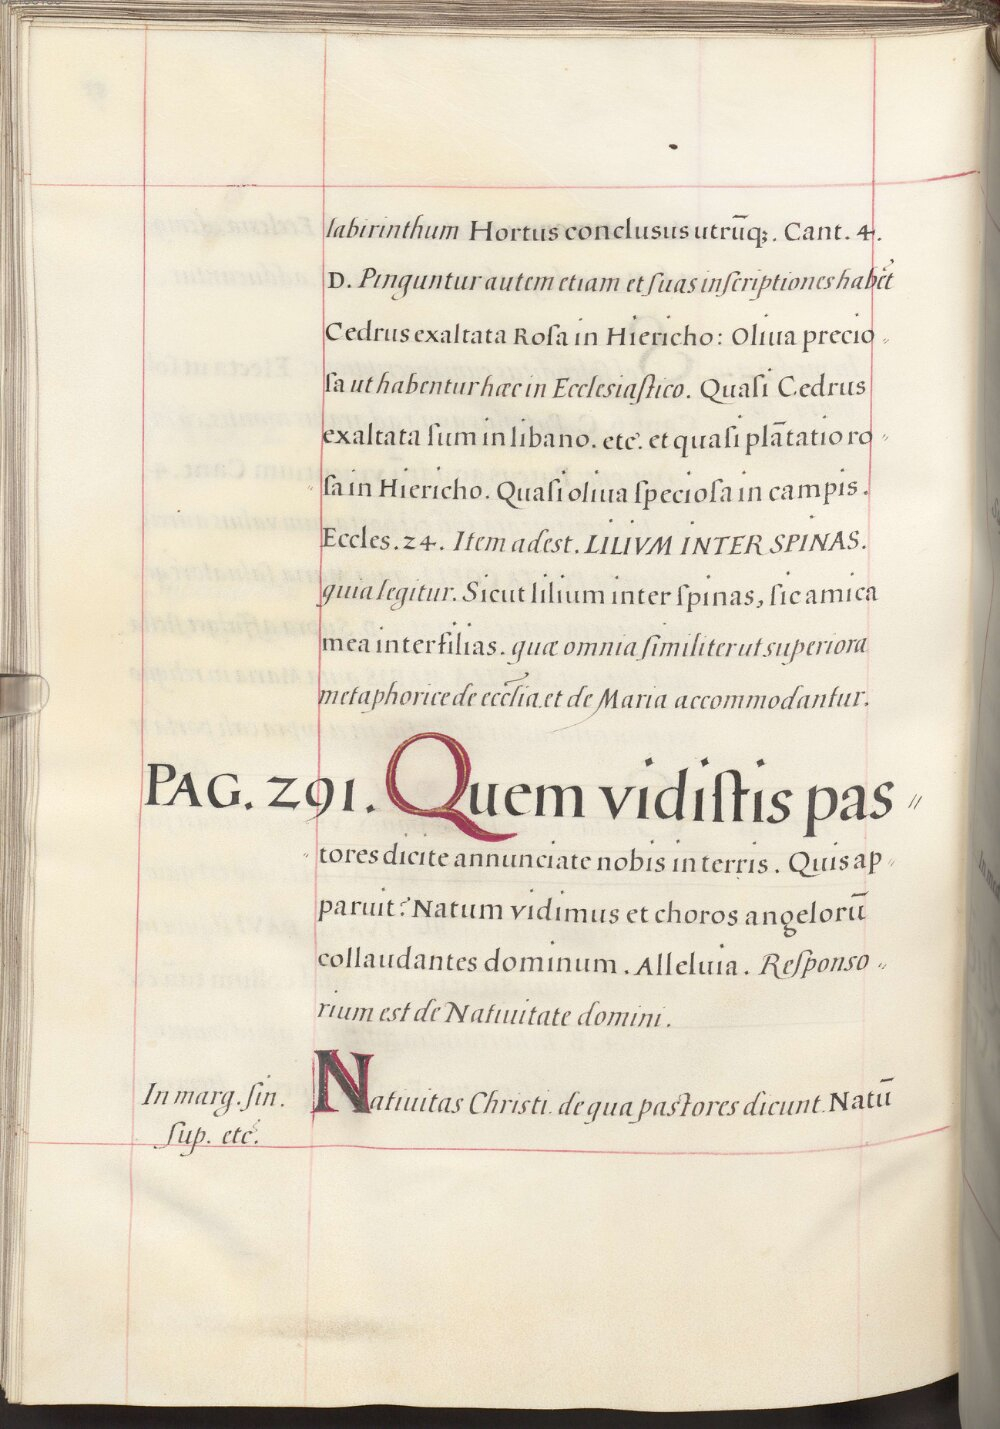 labirinthum Hortus conclusus utrūq;. Cant. 4.
D. Pinguntur autem etiam et ſuas inſcriptiones habēt
Cedrus exaltata Roſa in Hiericho: Oliua precio-
ſa ut habentur hæc in Ecclesiaſtico. Quaſi Cedrus
exaltata ſum in libano. etc. et quaſi plātatio ro-
ſa in Hiericho. Quaſi oliua ſpecioſa in campis.
Eccles. 24. Item adest. LILIVM INTER SPINAS.
quia legitur. Sicut lilium inter ſpinas, ſic amica
mea inter filias. quæ omnia ſimiliter ut superiora
metaphorice de eccľia et de Maria accommodantur.
PAG. 291. Quem vidiſtis pas-
tores dicite annunciate nobis in terris. Quis ap-
paruit? Natum vidimus et choros angelorū
collaudantes dominum. Alleluia. Reſponso-
rium est de Natiuitate domini.
In marg. ſin.
ſup. etc.
Natiuitas Christi. de qua pastores dicunt. Natū